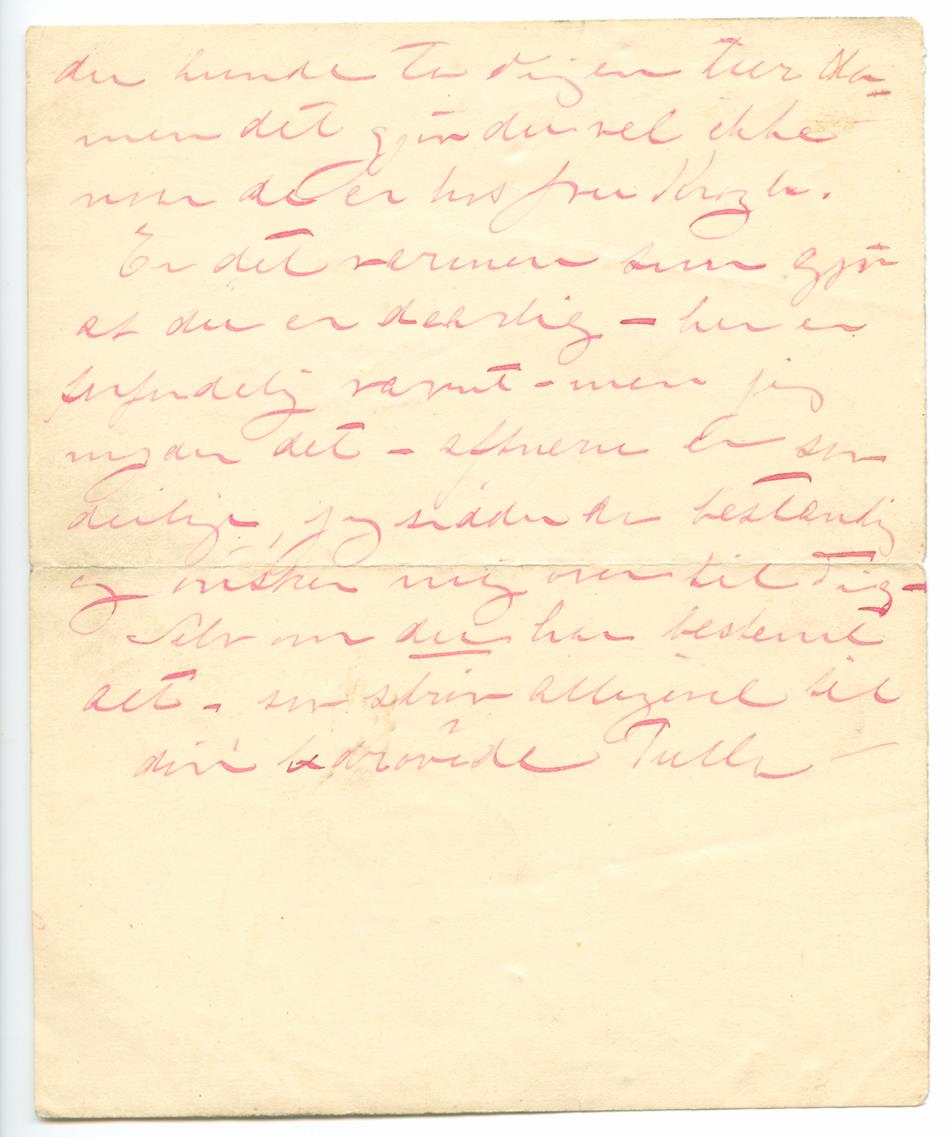 du kunde ta dig en tur
men det gjør du vel ikke
naar det er hos fru Krogh.
Er det varmen som gjør
at du er daarlig – her er
forfærdelig varmt – men jeg
nyder det – aftnerne er saa
deilige, jeg sidder da bestandig
og ønsker mig over til dig –
Selv om du har bestemt
det – saa skriv alligevel til
din bedrøvede Tulla –